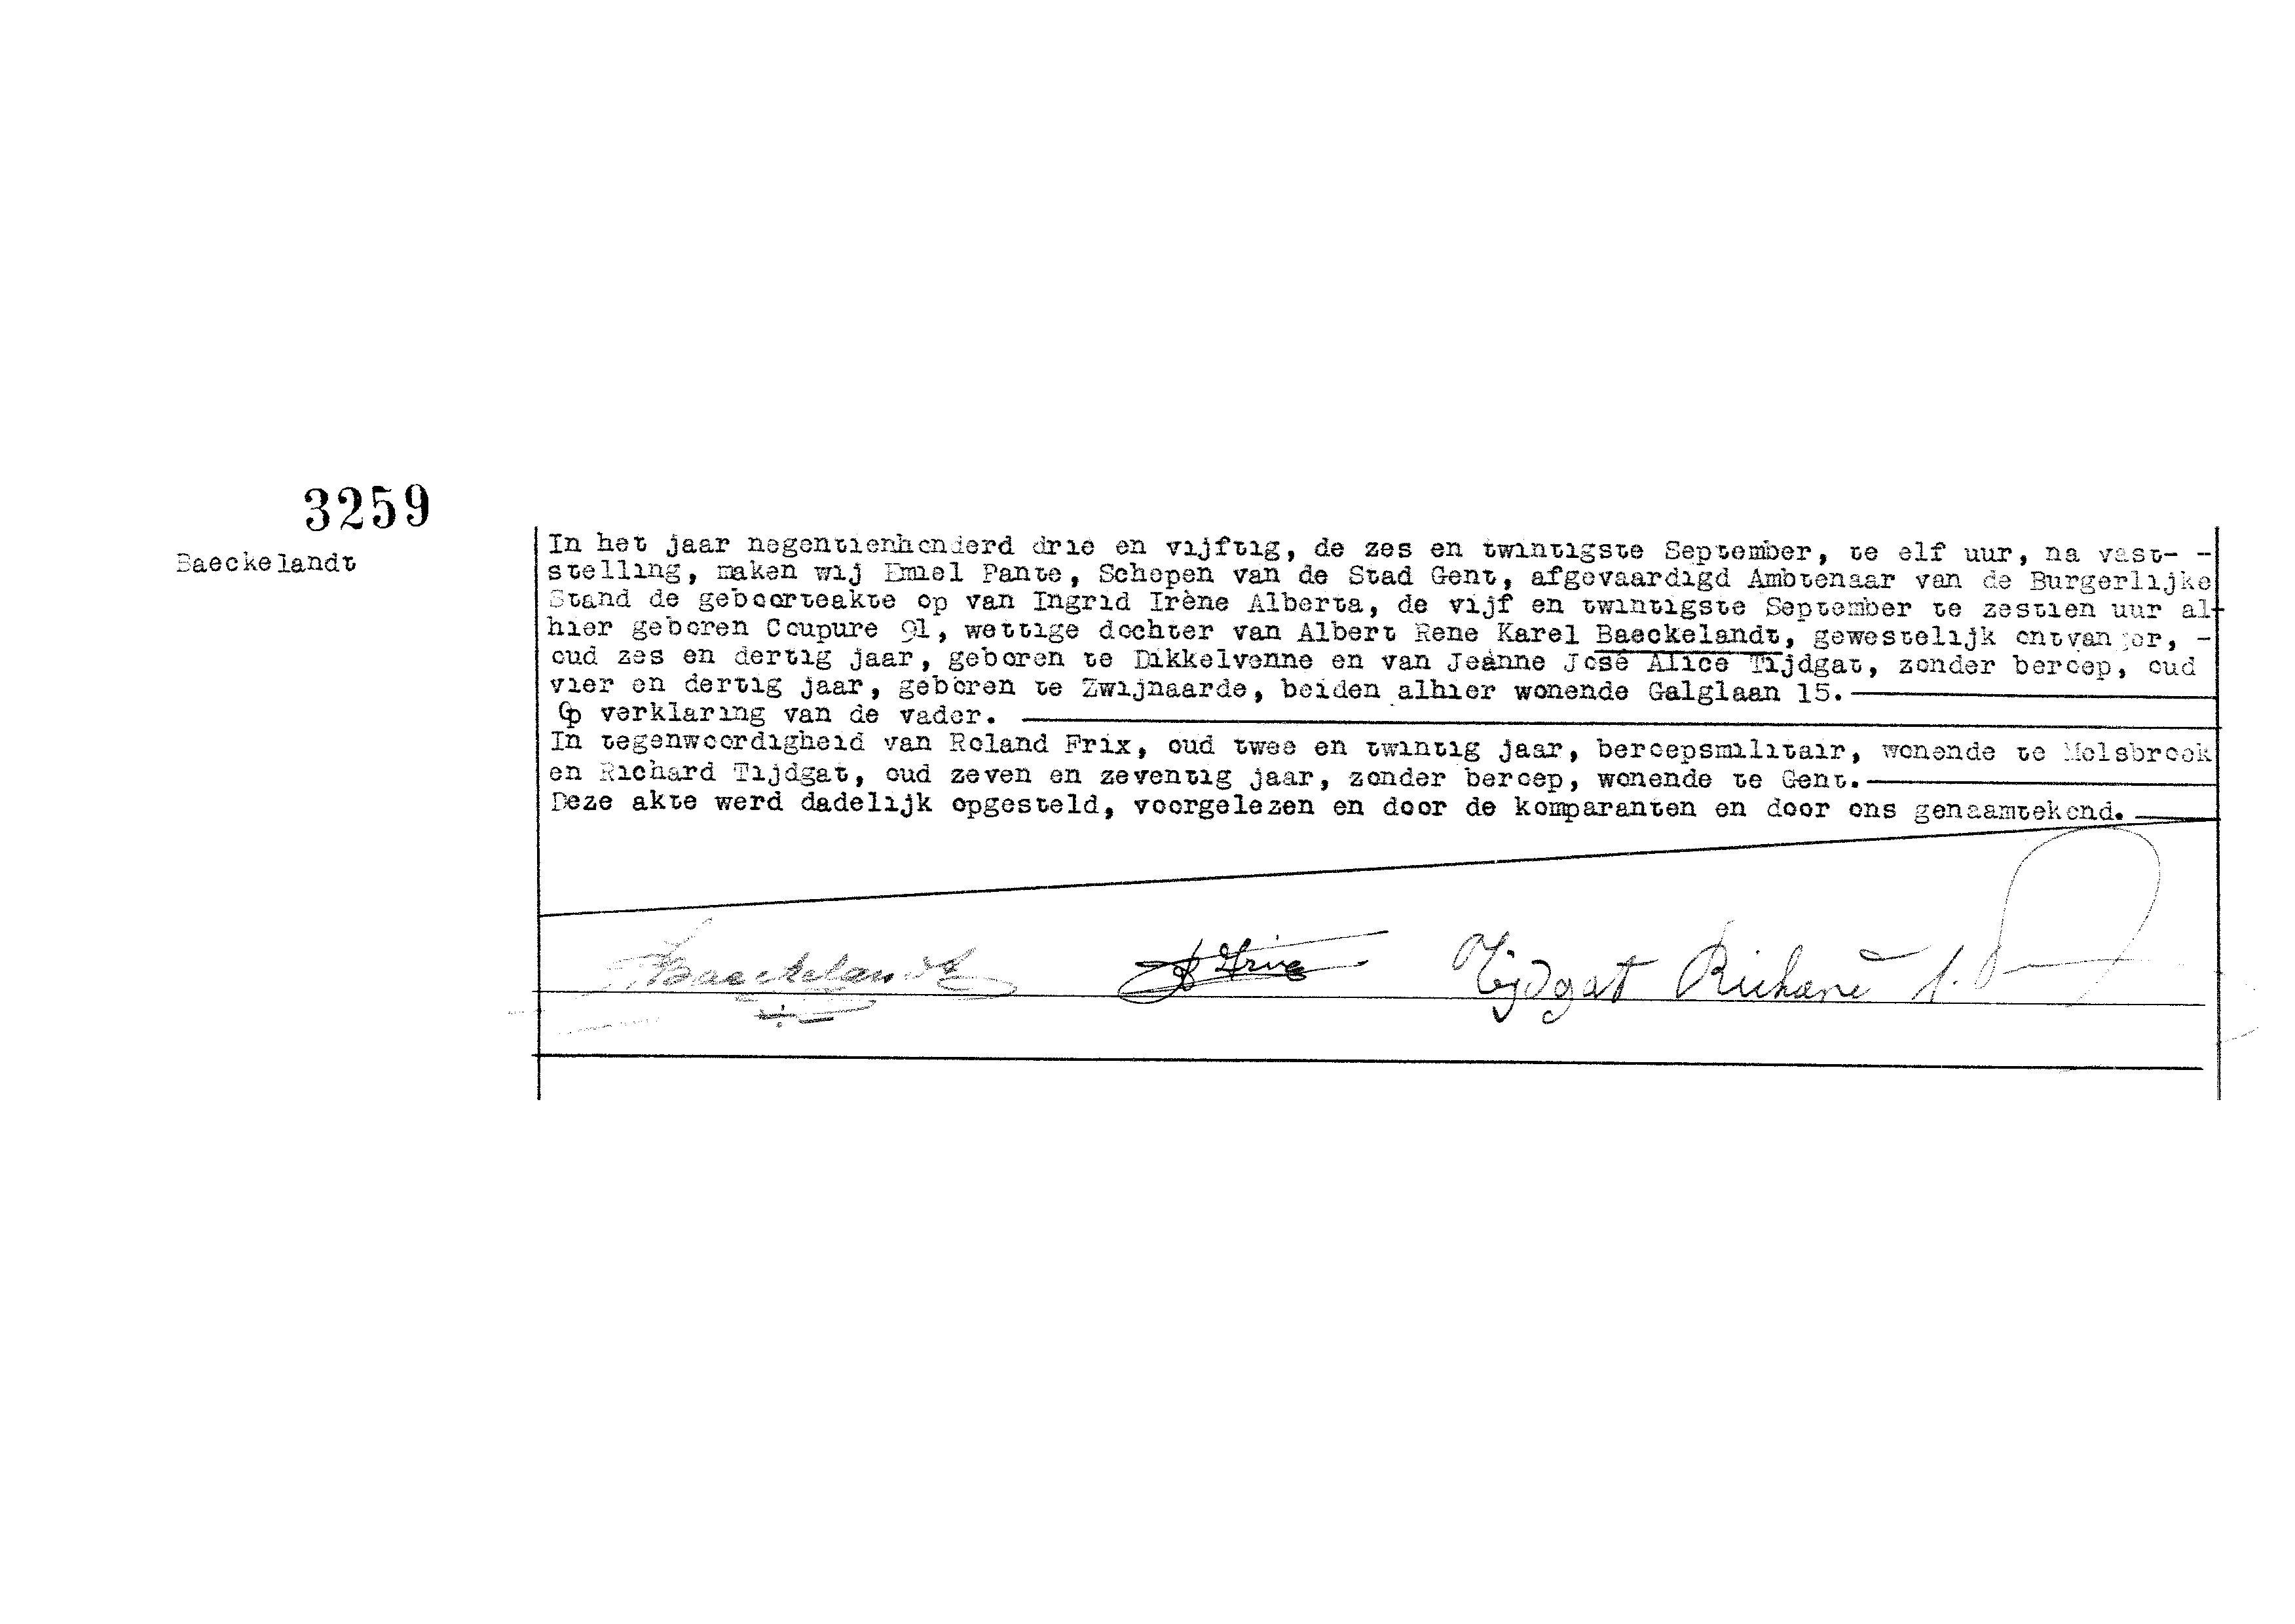 3259
Baeckelandt
In het jaar negentienhonderd drie en vijftig, de zes en twintigste September, te elf uur, na vast- -
stelling, maken wij Emiel Pante, Schepen van de Stad Gent, afgevaardigd Ambtenaar van de Burgerlijke
Stand de geboorteakte op van Ingrid Irène Alberta, de vijf en twintigste September te zestien uur al-
hier geboren Coupure 91, wettige dochter van Albert Rene Karel Baeckelandt, gewestelijk ontvanger, -
oud zes en dertig jaar, geboren te Dikkelvenne en van Jeanne José Alice Tijdgat, zonder beroep, oud
vier en dertig jaar, geboren te Zwijnaarde, beiden alhier wonende Galglaan 15.
Op verklaring van de vader.
In tegenwoordigheid van Roland Frix, oud twee en twintig jaar, beroepsmilitair, wonende te Melsbroek
en Richard Tijdgat, oud zeven en zeventig jaar, zonder beroep, wonende te Gent.
Deze akte werd dadelijk opgesteld, voorgelezen en door de komparanten en door ons genaamtekend.
Baeckelandt Tijdgat Richard